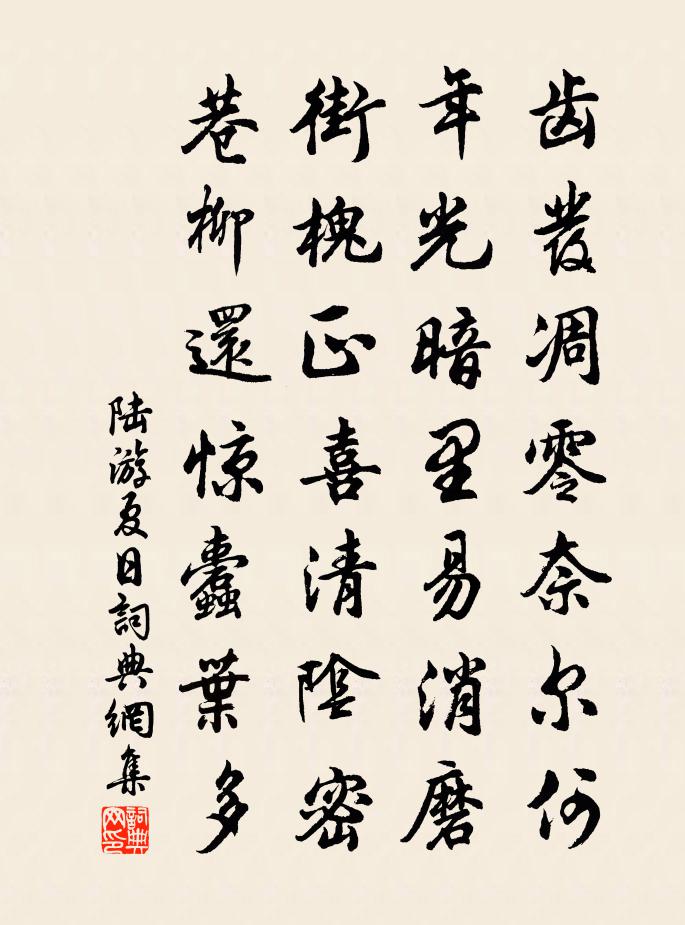 齿發凋零奈尔何
年光暗里易消磨
街槐正喜清陰密
巷柳還惊蠹葉多
陆游夏日詞典網集
詞典网印